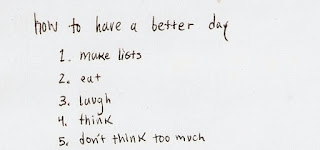 how to have a better day
1. make lists
2. eat
3. laugh
4. think
5. don't think too much